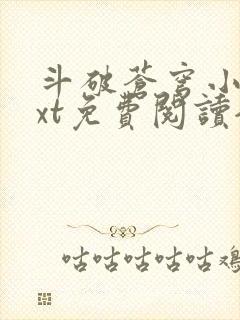 斗破蒼穹小
xt免費閱讀
咕咕咕咕咕雞